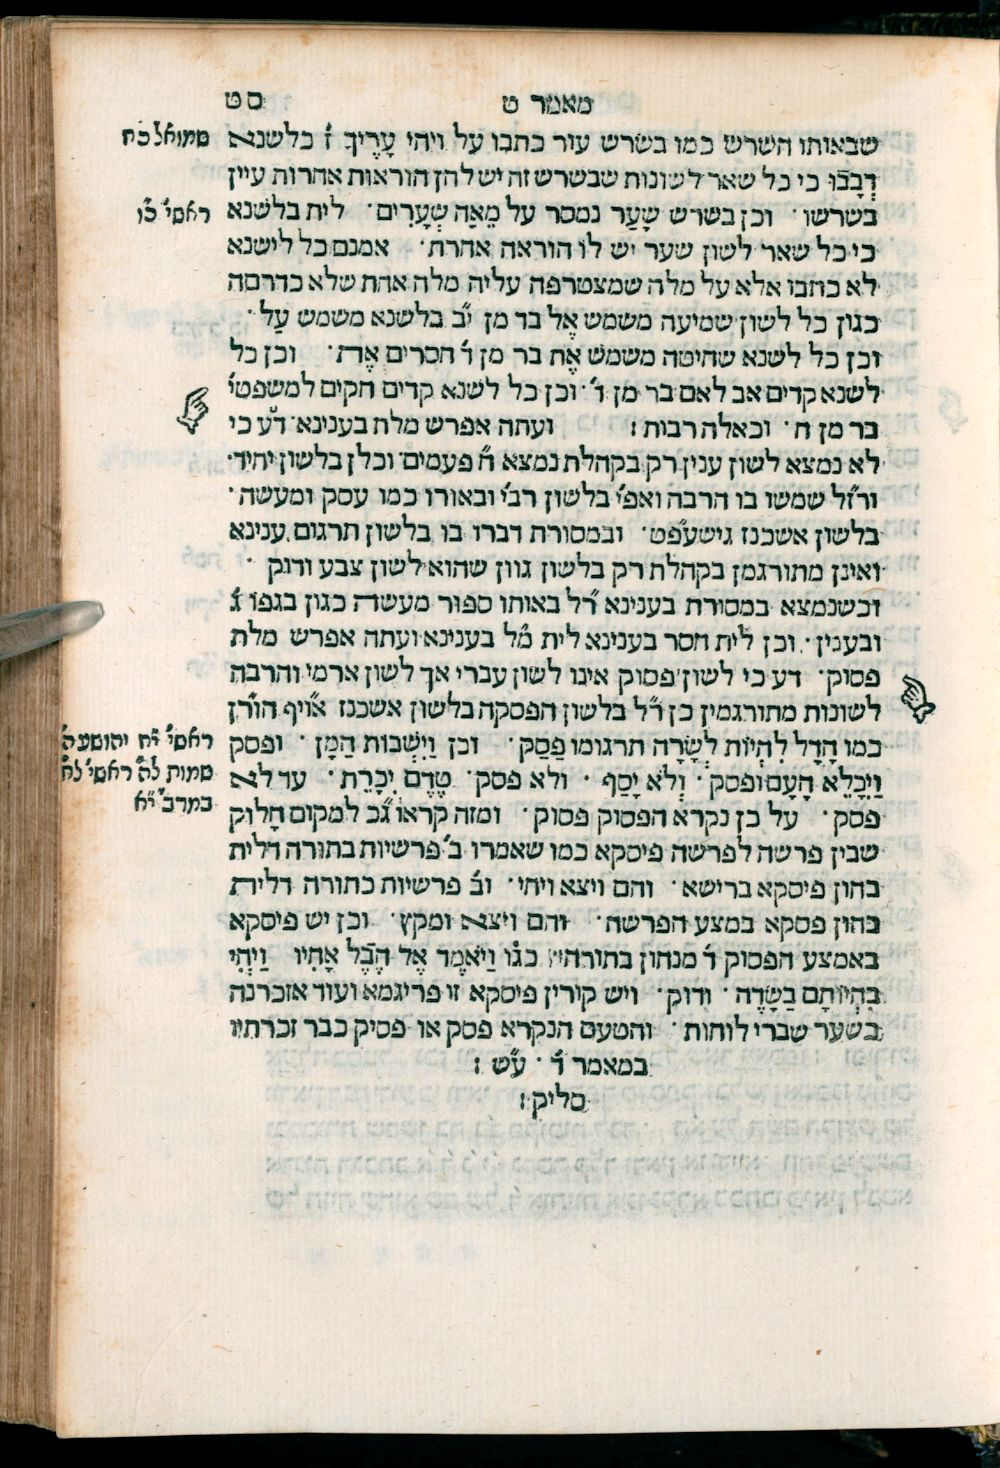 מאמר ט
סט
שבאותו השרש כמו בשרש עור כתבו על ויהי עָרֶיךָ ז̇ בלשנא
שמואל כח
דְבָבוּ כי כל שאר לשונות שבשרש זה יש להן הוראות אחרות עיין
בשרשו · וכן בשרש שָעַר נמסר על מֵאָה שְעָרִים · לית בלשנא
ראשי' כ̇ו
כי כל שאר לשון שער יש לו הוראה אחרת · אמנם כל לישנא
לא כתבו אלא על מלה שמצטרפה עליה מלה אחת שלא כדרכה
כגון כל לשון שמיעה משמש אֶל בד מן י̎ב בלשנא משמש עַל ·
וכן כל לשנא שחיטה משמש אֶת בר מן ד̇ חסרים אֶת · וכן כל
לשנא קדים אב לאם בר מן ד̇ · וכן כל לשנא קדים חקים למשפטי'
בר מן ח · וכאלה רבות : ועתה אפרש מלת בענינא · דע כי
לא נמצא לשון ענין רק בקהלת נמצא ח̇ פעמים · וכלן בלשון יחיד ·
ור̎זל שמשו בו הרבה ואפי' בלשון רבי' ובאורו כמו עסק ומעשה ·
בלשון אשכנז גישע̎פט · ובמסורת דברו בו בלשון תרגום ענינא
ואינן מתורגמן בקהלת רק בלשון גוון שהוא לשון צבע ודוק ·
וכשנמצא במסורת בענינא ר̎ל באותו ספור מעשה כגון בגפו ג̇
ובענין · וכן לית חסר בענינא לית מ̎ל בענינא ועתה אפרש מלת
פסוק · דע כי לשון פסוק אינו לשון עברי אך לשון ארמי והרבה
לשונות מתורגמין כן ר̎ל בלשון הפסקה בלשון אשכנז או̎יף הו̎רן
כמו חָדַל לִהְיוֹת לְשָׂרָה תרגומו פַסַק · וכן וַיִשְבוֹת הַמָן · ופסק
ראשי' י̎ח יהושע ה'
וַיִכָלֵא הָעָם ופסק · וְלֹא יָסַף · ולא פסק · טֶרֶם יִכָרֵת · עד לא
שמות ל̎ה ראשי' ל̎ח
במדב' י̎א
פסק · על כן נקרא הפסוק פסוק · ומזה קראו ג̎כ למקום חָלוק
שבין פרשה לפרשה פיסקא כמו שאמרו ב' פרשיות בתורה דלית
בהון פיסקא ברישא · והם ויצא ויחי · וב̇ פרשיות בתורה דלית
בהון פסקא במצע הפרשה · והם ויצא ומקץ · וכן יש פיסקא
באמצע הפסוק ד̇ מנהון בתורה · כגו וַיֹאמֶר אֶל הֶבֶל אָחִיו וַיְהִי
בִהְיוֹתָם בַשָדֶה · ודוק · ויש קורין פיסקא זו פריגמא ועוד אזכרנה
בשער שברי לוחות · והטעם הנקרא פסק או פסיק כבר זכרתיו
במאמר ד̇ · ע̎ש :
סליק :